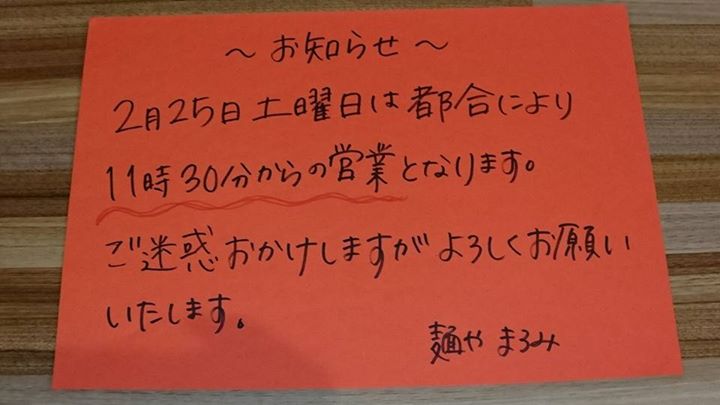 ～お知らせ～
2月25日土曜日は都合により
11時30分からの営業となります。
ご迷惑おかけしますがよろしくお願い
いたします。
麺や まろみ